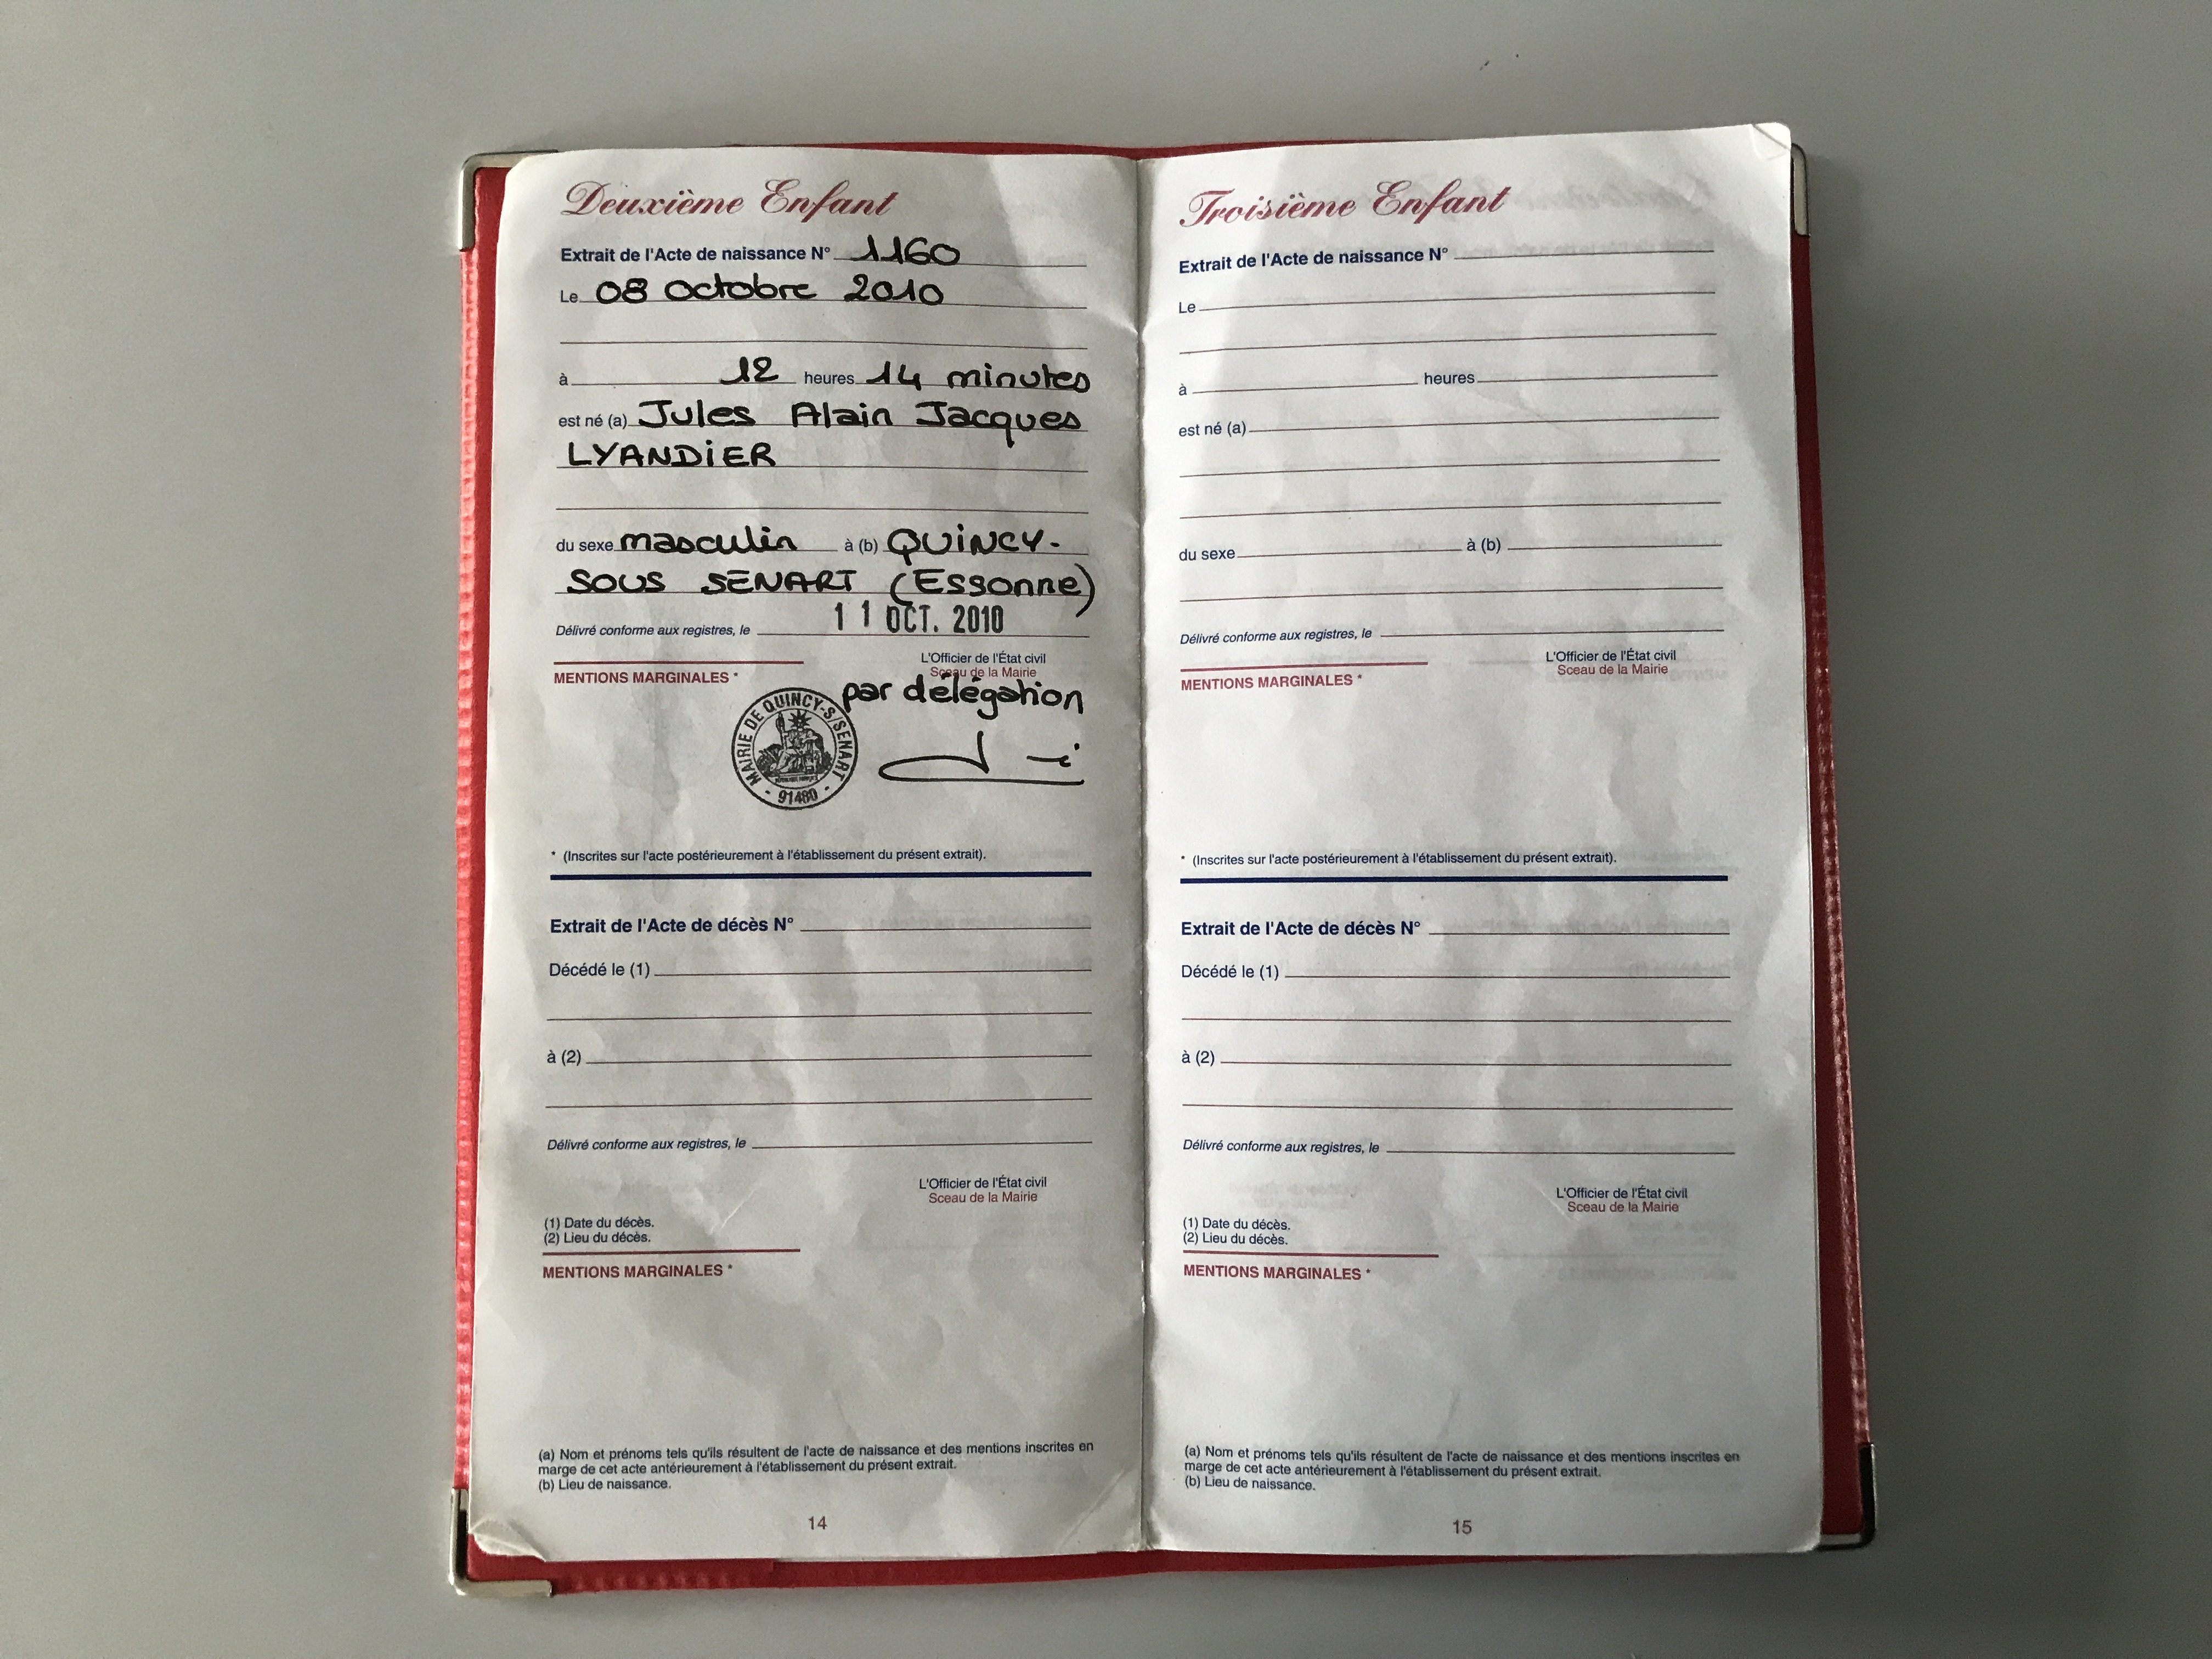 Deuxième Enfant
Extrait de l'Acte de naissance N° 1160
Le 08 octobre 2010
à 12 heures 14 minutes
est né (a) Jules Alain Jacques
LYANDiER
du sexe masculin à (b) QUiNCY-
SOUS SENART (Essonne)
Délivré conforme aux registres, le 11 OCT. 2010
L'Officier de l'État civil
Sceau de la Mairie
MENTIONS MARGINALES *
par délégation
MAIRIE DE QUINCY-S/SENART
- 91480 -
* (Inscrites sur l'acte postérieurement à l'établissement du présent extrait).
Extrait de l'Acte de décès N°
Décédé le (1)
à (2)
Délivré conforme aux registres, le
L'Officier de l'État civil
Sceau de la Mairie
(1) Date du décès.
(2) Lieu du décès.
MENTIONS MARGINALES *
(a) Nom et prénoms tels qu'ils résultent de l'acte de naissance et des mentions inscrites en
marge de cet acte antérieurement à l'établissement du présent extrait.
(b) Lieu de naissance.
14
Troisième Enfant
Extrait de l'Acte de naissance N°
Le
à heures
est né (a)
du sexe à (b)
Délivré conforme aux registres, le
L'Officier de l'État civil
Sceau de la Mairie
MENTIONS MARGINALES *
* (Inscrites sur l'acte postérieurement à l'établissement du présent extrait).
Extrait de l'Acte de décès N°
Décédé le (1)
à (2)
Délivré conforme aux registres, le
L'Officier de l'État civil
Sceau de la Mairie
(1) Date du décès.
(2) Lieu du décès.
MENTIONS MARGINALES *
(a) Nom et prénoms tels qu'ils résultent de l'acte de naissance et des mentions inscrites en
marge de cet acte antérieurement à l'établissement du présent extrait.
(b) Lieu de naissance.
15